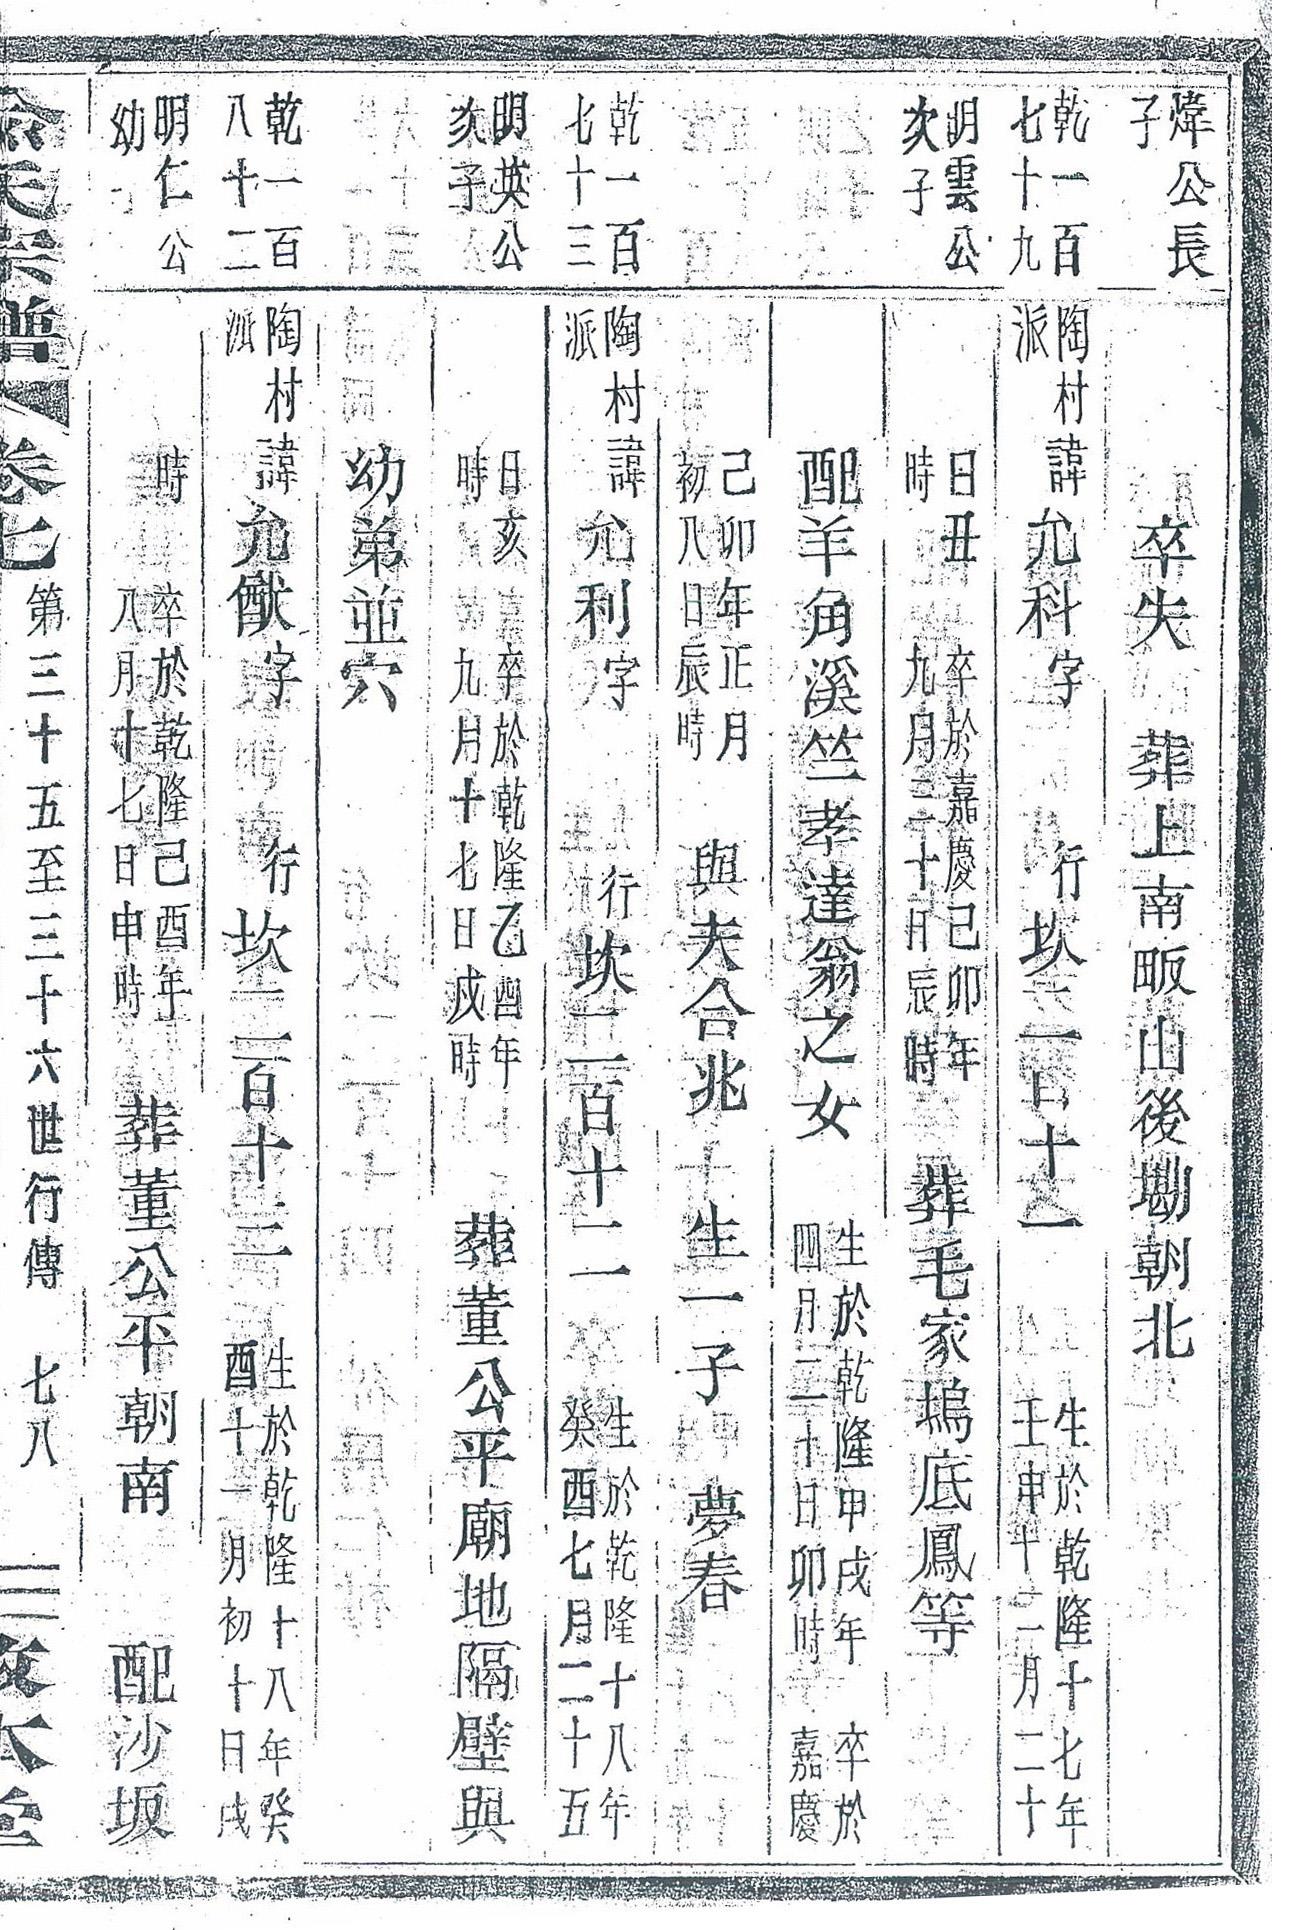 煒公長
子
卒失　葬上南畈山後墈朝北
乾一百
七十九
陶村
派
諱允科字　行坎二百十一
生於乾隆十七年
壬申十二月二十
明雲公
次子
日丑
時
卒於嘉慶己卯年
九月二十日辰時
葬毛家塢底鳳等
配羊角溪竺孝達翁之女
生於乾隆甲戌年　卒於
四月二十日卯時　嘉慶
己卯年正月
初八日辰時
與夫合兆　生一子　夢春
乾一百
七十三
陶村
派
諱允利字　行坎二百十二
生於乾隆十八年
癸酉七月二十五
明英公
次子
日亥
時
卒於乾隆乙酉年
九月十七日戌時
葬董公平廟地隔壁與
幼弟並穴
乾一百
八十二
陶村
派
諱允猷字　行坎二百十三
生於乾隆十八年癸
酉十一月初十日戌
明仁公
幼
時
卒於乾隆己酉年
八月十七日申時
葬董公平朝南　配沙坂
氏宗譜　卷七　第三十五至三十六世行傳　七八